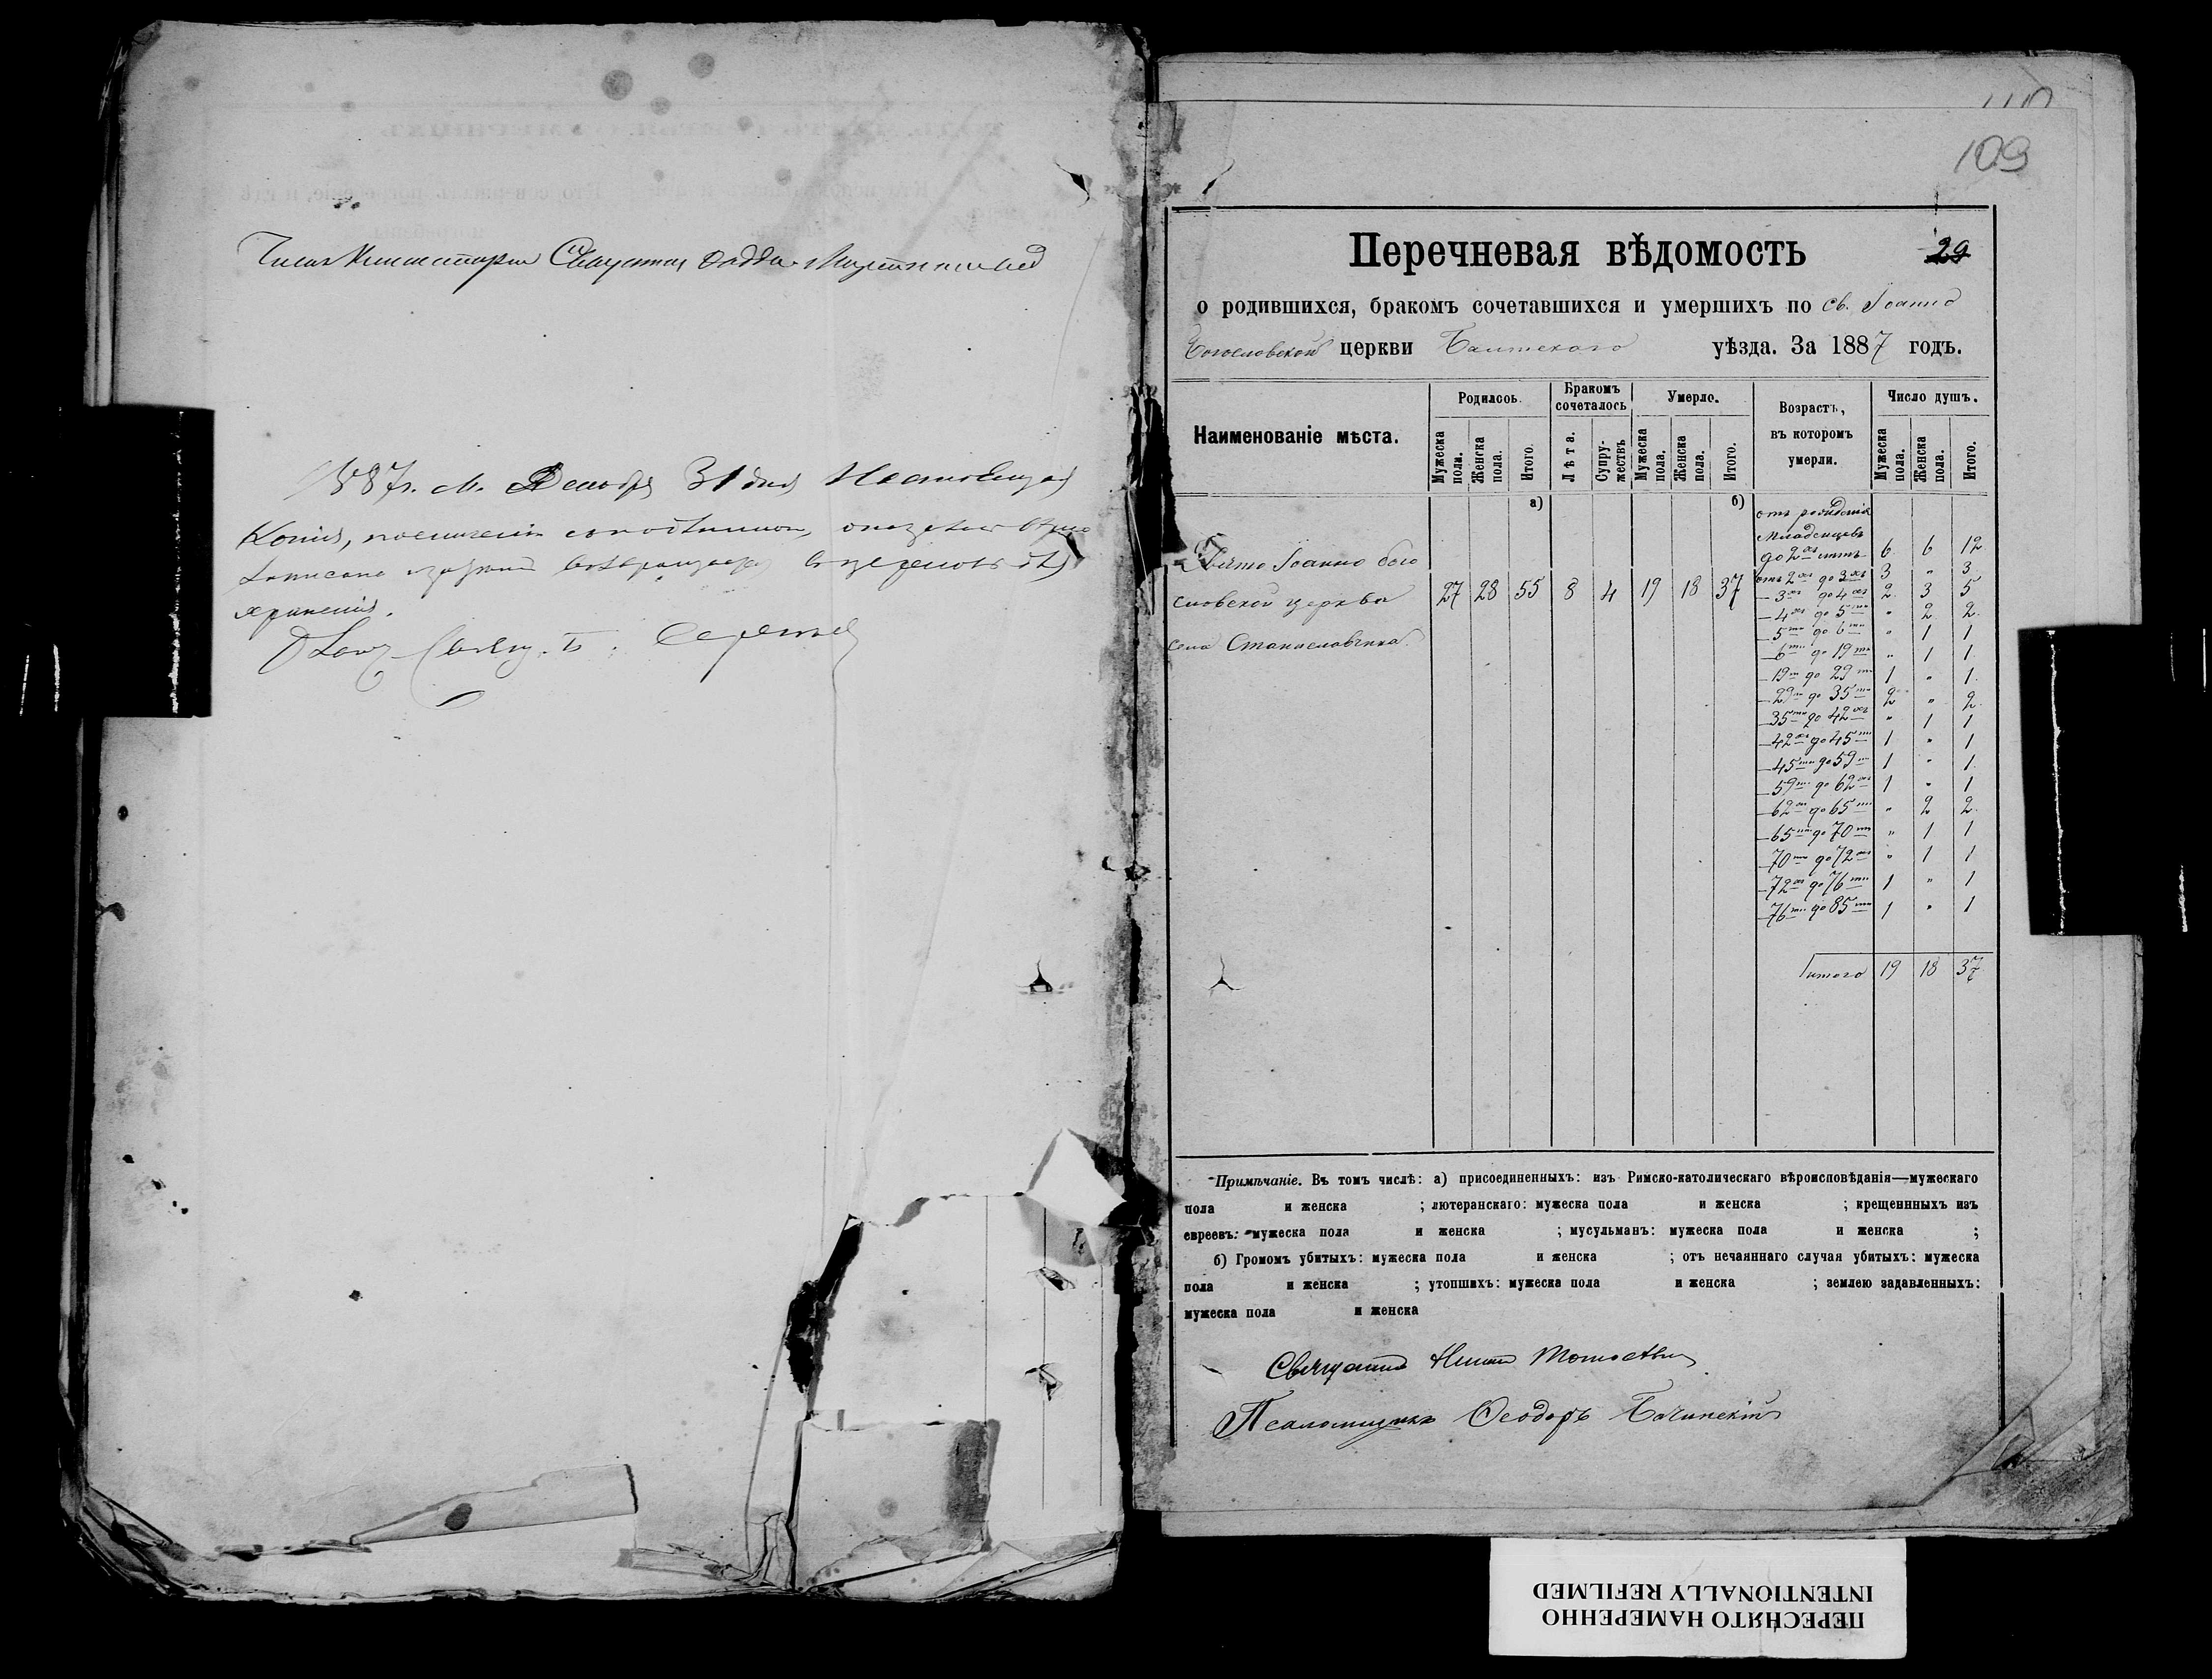 Члены Консисторіи Священникъ
1887 г. м. Декабря 31 дня Настоящая
копія, по сличеніи съ подлинною, оказалась вѣрно
записана
храненія.
109
Перечневая вѣдомость 29
о родившихся, бракомъ сочетавшихся и умершихъ по св. Іоанно
Богословской церкви Балтскаго уѣзда. За 1887 годъ.
Наименованіе мѣста. Родилось. Бракомъ сочеталось Умерло. Возрастъ, въ которомъ умерли. Число душъ.
Мужеска пола. Женска пола. Итого. Лѣта. Супружествъ Мужеска пола. Женска пола. Итого. Мужеска пола. Женска пола. Итого.
а) б)
отъ рожденія
младенцевъ
до 2хъ лѣтъ 6 6 12
отъ 2хъ до 3хъ 3 „ 3
— 3хъ до 4хъ 2 3 5
— 4хъ до 5ти „ 2 2
— 5ти до 6ти „ 1 1
— 6ти до 19ти „ 1 1
— 19ти до 29ти 1 „ 1
— 29ти до 35ти 2 „ 2
— 35ти до 42хъ „ 1 1
— 42хъ до 45ти 1 „ 1
— 45ти до 59ти 1 „ 1
— 59ти до 62хъ 1 „ 1
— 62хъ до 65ти „ 2 2
— 65ти до 70ти „ 1 1
— 70ти до 72хъ „ 1 1
— 72хъ до 76ти 1 „ 1
— 76ти до 85ти 1 „ 1
Итого 19 18 37
Свято Іоанно бого
словской церкви 27 28 55 8 4 19 18 37
села Станиславчика.
Примѣчаніе. Въ томъ числѣ: а) присоединенныхъ: изъ Римско-католическаго вѣроисповѣданія—мужескаго
пола и женска ; лютеранскаго: мужеска пола и женска ; крещеннныхъ изъ
евреевъ: мужеска пола и женска ; мусульманъ: мужеска пола и женска ;
б) Громомъ убитыхъ: мужеска пола и женска ; отъ нечаяннаго случая убитыхъ: мужеска
пола и женска ; утопшихъ: мужеска пола и женска ; землею задавленныхъ:
мужеска пола и женска
Священникъ
Псаломщикъ Ѳеодоръ Бачинскій
ПЕРЕСНЯТО НАМЕРЕННО
INTENTIONALLY REFILMED